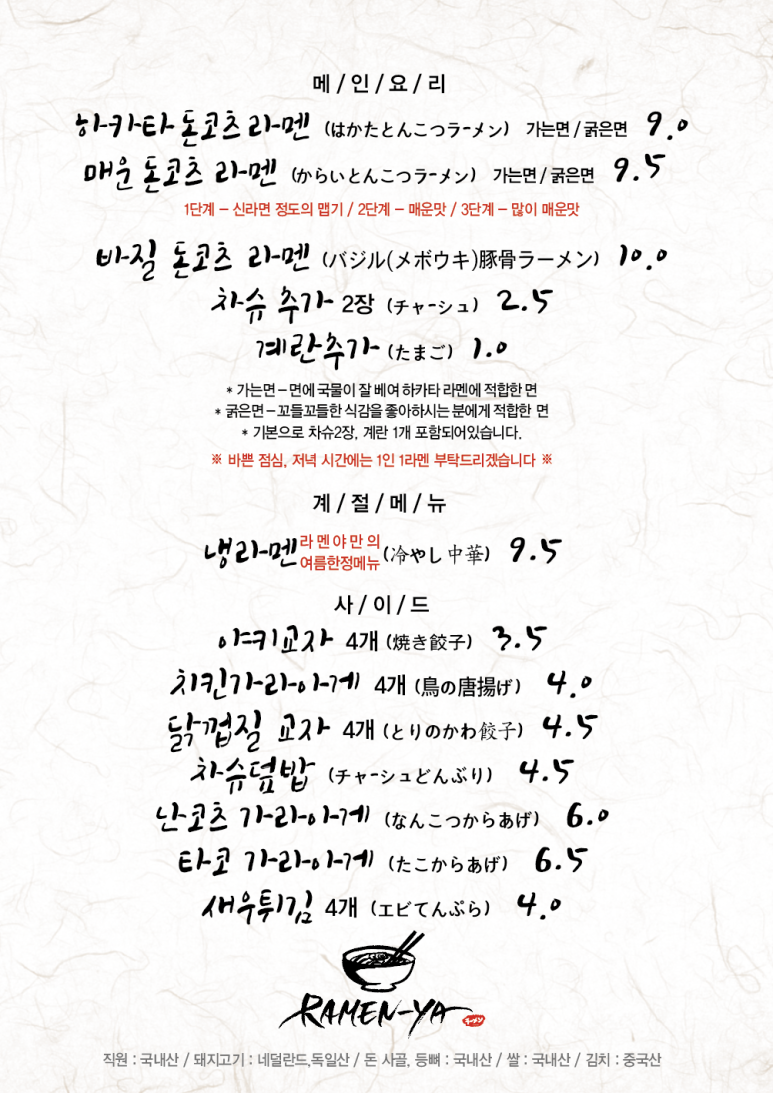 메/인/요/리
하카타 돈코츠 라멘 (はかたとんこつラーメン) 가는면/굵은면 9.0
매운 돈코츠 라멘 (からいとんこつラーメン) 가는면/굵은면 9.5
1단계 – 신라면 정도의 맵기 / 2단계 – 매운맛 / 3단계 – 많이 매운맛
바질 돈코츠 라멘 (バジル(メボウキ)豚骨ラーメン) 10.0
차슈 추가 2장 (チャーシュ) 2.5
계란추가 (たまご) 1.0
* 가는면 – 면에 국물이 잘 베여 하카타 라멘에 적합한 면
* 굵은면 – 꼬들꼬들한 식감을 좋아하시는 분에게 적합한 면
* 기본으로 차슈2장, 계란 1개 포함되어있습니다.
※ 바쁜 점심, 저녁 시간에는 1인 1라멘 부탁드리겠습니다 ※
계/절/메/뉴
냉라멘 라멘야만의 여름한정메뉴 (冷やし中華) 9.5
사/이/드
야키교자 4개 (焼き餃子) 3.5
치킨가라아게 4개 (鳥の唐揚げ) 4.0
닭껍질 교자 4개 (とりのかわ餃子) 4.5
차슈덮밥 (チャーシュどんぶり) 4.5
난코츠 가라아게 (なんこつからあげ) 6.0
타코 가라아게 (たこからあげ) 6.5
새우튀김 4개 (エビてんぷら) 4.0
RAMEN-YA ラーメン
직원 : 국내산 / 돼지고기 : 네덜란드,독일산 / 돈 사골, 등뼈 : 국내산 / 쌀 : 국내산 / 김치 : 중국산